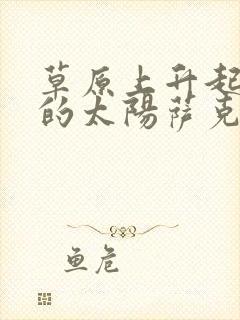 草原上升起
的太陽萨克
鱼危